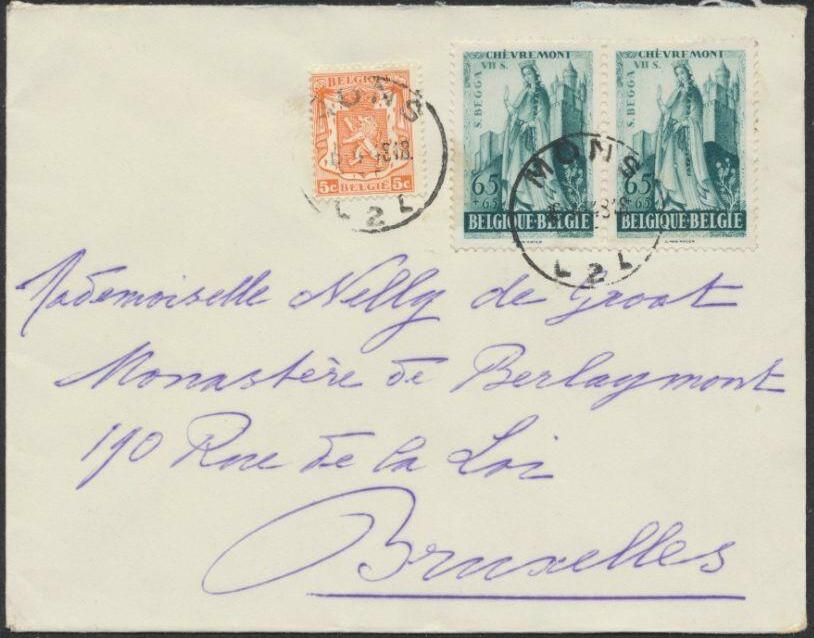 BELGIQUE
5c BELGIË 5c
MONS
48 18
L 2 L
CHÈVREMONT
VII S.
S. BEGGA
65
+65
BELGIQUE-BELGIË
CHÈVREMONT
VII S.
S. BEGGA
65
+65
BELGIQUE-BELGIË
MONS
48 18
L 2 L
Mademoiselle Nelly de Groot
Monastère de Berlaymont
190 Rue de la Loi
Bruxelles